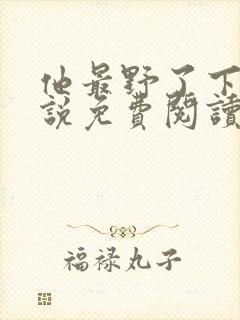 他最野了下
説免費閱讀
福禄丸子